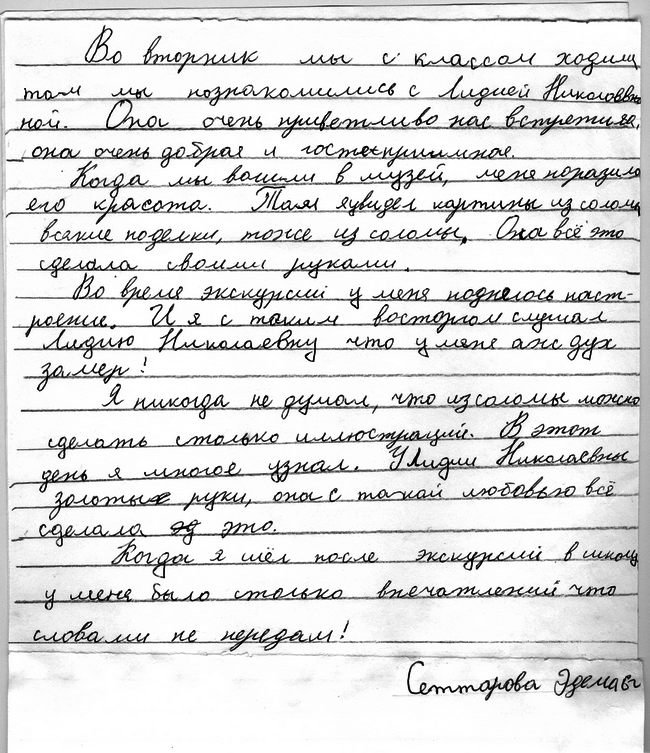 Во вторник мы с классом ходили
там мы познакомились с Лидией Николаевной
ной. Она очень приветливо нас встретила,
она очень добрая и гостеприимная.
Когда мы вошли в музей, мене поразила
его красота. Там я увидел картины из соломы
всякие поделки, тоже из соломы. Она всё это
сделала своими руками.
Во време экскурсий у меня поднелось наст-
роение. И я с таким восторгом слушал
Лидию Николаевну что у меня аж дух
замер!
Я никогда не думал, что из соломы можно
сделать столько иллюстраций. В этот
день я многое узнал. У Лидии Николаевны
золотые руки, она с такой любовью всё
сделала это.
Когда я шёл после экскурсий в школу
у меня было столько впечатлений что
словами не передам!
Сеттарова Эдема